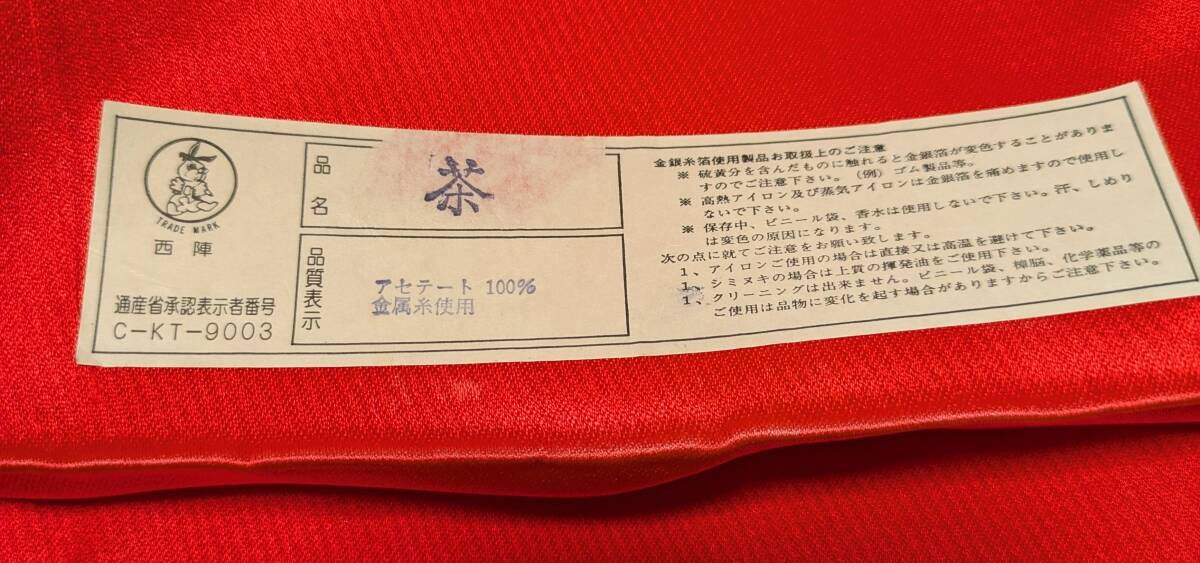 TRADE MARK
西陣
通産省承認表示者番号
C-KT-9003
品名
茶
品質表示
アセテート 100%
金属糸使用
金銀糸箔使用製品お取扱上のご注意
※ 硫黄分を含んだものに触れると金銀箔が変色することがありま
すのでご注意下さい。(例)ゴム製品等。
※ 高熱アイロン及び蒸気アイロンは金銀箔を痛めますので使用し
ないで下さい。
※ 保存中、ビニール袋、香水は使用しないで下さい。汗、しめり
は変色の原因になります。
次の点に就てご注意をお願い致します。
1、アイロンご使用の場合は直接又は高温を避けて下さい。
1、シミヌキの場合は上質の揮発油をご使用下さい。
1、クリーニングは出来ません。ビニール袋、樟脳、化学薬品等の
ご使用は品物に変化を起す場合がありますからご注意下さい。